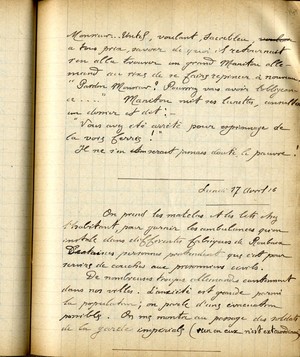 Monsieur voulant Sacrebleu,
à tous prix, savoir de quoi il retournait
s'en alla trouver un grand Manitou alle-
mand au risque de se faire repincer à nouveau
"Pardon Monsieur! Pourrais vous avoir l'obligeance
" Manitou mit ses lunettes, consulta
un dossier et dit:-
"Vous avez été arrêté pour espionnage de
la voie ferrée!"
Il ne s'en serait jamais douté le pauvre!
Lundi 17 Avril 16
On prend les matelas et les lits chez
l'habitant, pour garnir les ambulances qu'on
installe dans différentes fabriques de Roubaix.
Certaines personnes prétendent que c'est pour
servire de couches aux prisonniers civils.
De nombreuses troupes allemandes cantonnent
dans nos villes. L'anxiété est grande parmi
la population; on parle d'une évacuation
possible. On me montre au passage des soldats
de la garde impériale (rien en eux n'est extraordinaire